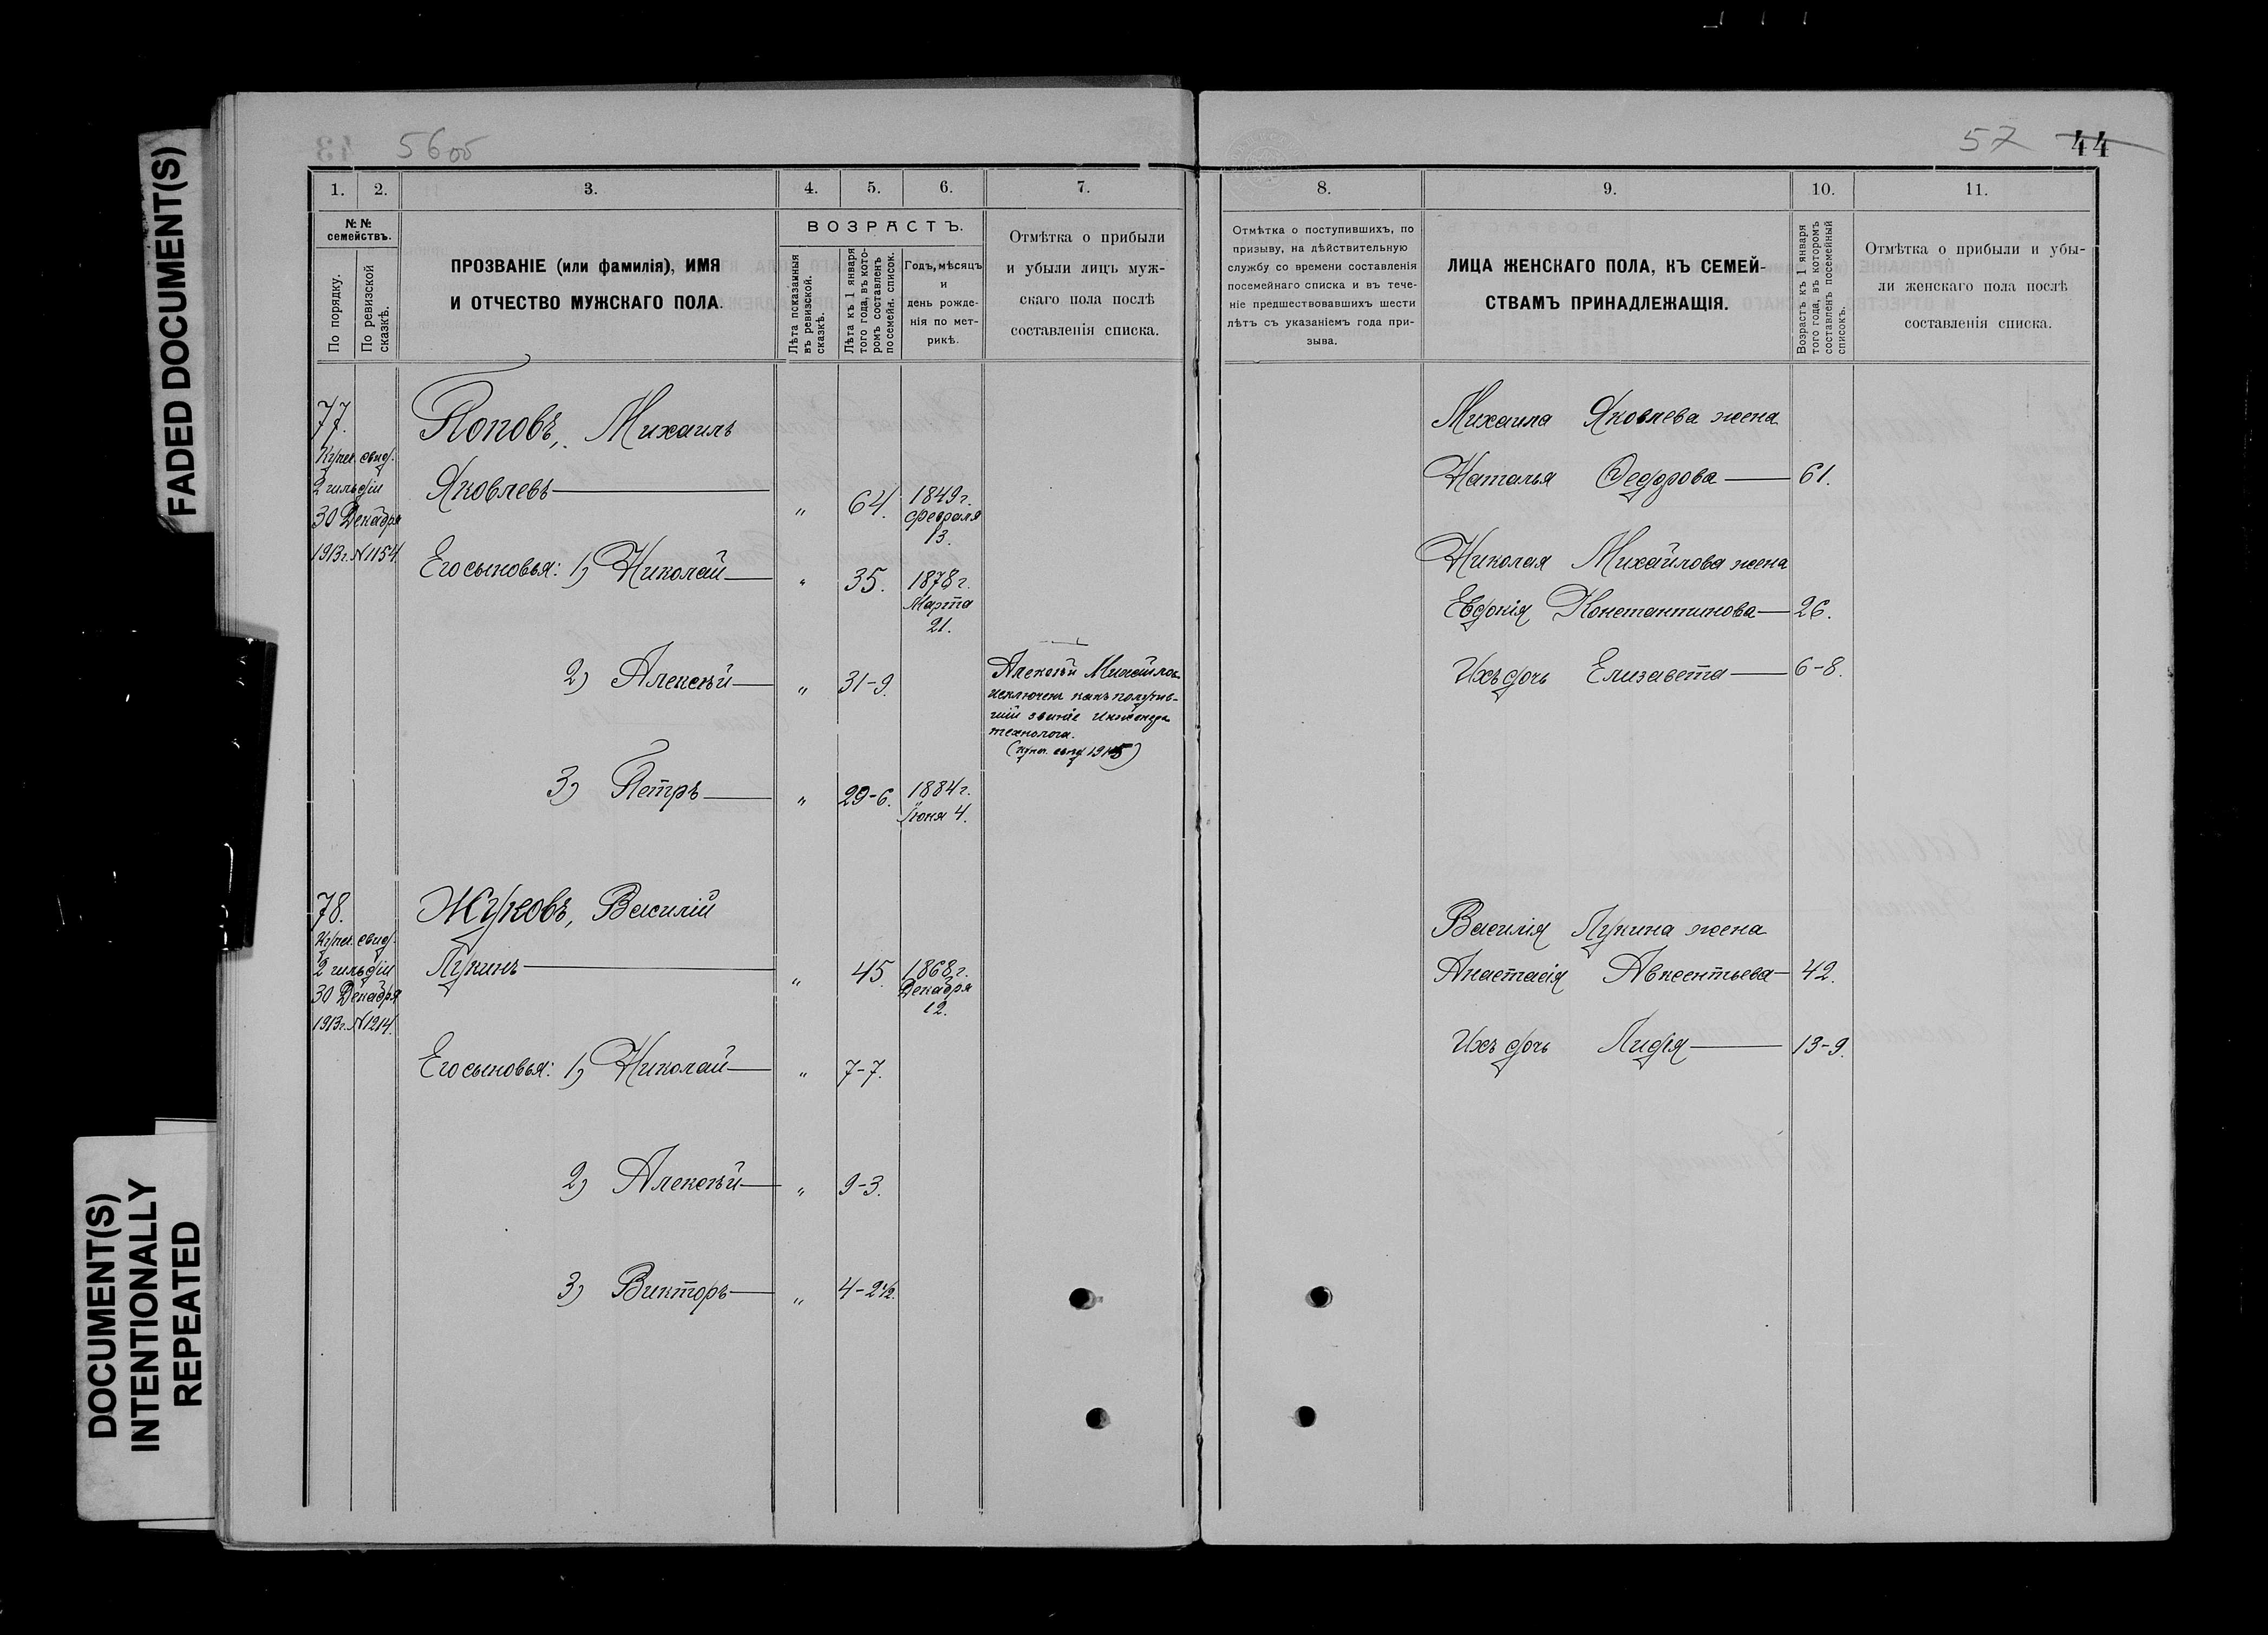 FADED DOCUMENT(S)
DOCUMENT(S)
INTENTIONALLY
REPEATED
56 об
1. 2. 3. 4. 5. 6. 7.
№№
семействъ.
По порядку.
По ревизской
сказкѣ.
ПРОЗВАНІЕ (или фамилія), ИМЯ
И ОТЧЕСТВО МУЖСКАГО ПОЛА.
ВОЗРАСТЪ.
Лѣта показанныя
въ ревизской.
сказкѣ.
Лѣта къ 1 января
того года, въ кото-
ромъ составленъ
посемейн. список.
Годъ, мѣсяцъ
и
день рожде-
нія по мет-
рикѣ.
Отмѣтка о прибыли
и убыли лицъ муж-
скаго пола послѣ
составленія списка.
77.
Купеч. свид.
2 гильдіи
30 Декабря
1913 г. № 1154
Поповъ, Михаилъ
Яковлевъ " 64. 1849 г.
Февраля
13.
Его сыновья: 1) Николай " 35. 1878 г.
Марта
21.
2) Алексѣй " 31-9.
Алексѣй Михайлов.
исключенъ какъ получив-
шій званіе Инженера
технолога.
(купч. свид 1915)
3) Петръ " 29-6. 1884 г.
Іюня 4.
78.
Купеч. свид.
2 гильдіи
30 Декабря
1913 г. № 1214.
Жуковъ, Василій
Лукинъ " 45 1868 г.
Декабря
12.
Его сыновья: 1) Николай " 7-7.
2) Алексѣй " 9-3.
3) Викторъ " 4-2½.
57 44
8. 9. 10. 11.
Отмѣтка о поступившихъ, по
призыву, на дѣйствительную
службу со времени составленія
посемейнаго списка и въ тече-
ніе предшествовавшихъ шести
лѣтъ съ указаніемъ года при-
зыва.
ЛИЦА ЖЕНСКАГО ПОЛА, КЪ СЕМЕЙ-
СТВАМЪ ПРИНАДЛЕЖАЩІЯ.
Возрастъ къ 1 января
того года, въ которомъ
составленъ посемейный
списокъ.
Отмѣтка о прибыли и убы-
ли женскаго пола послѣ
составленія списка.
Михаила Яковлева жена
Наталья Федорова 61.
Николая Михайлова жена
Евдокія Константинова 26.
Ихъ дочь Елизавета 6-8.
Василія Лукина жена
Анастасія Авксентьева 42.
Ихъ дочь Лидія 13-9.